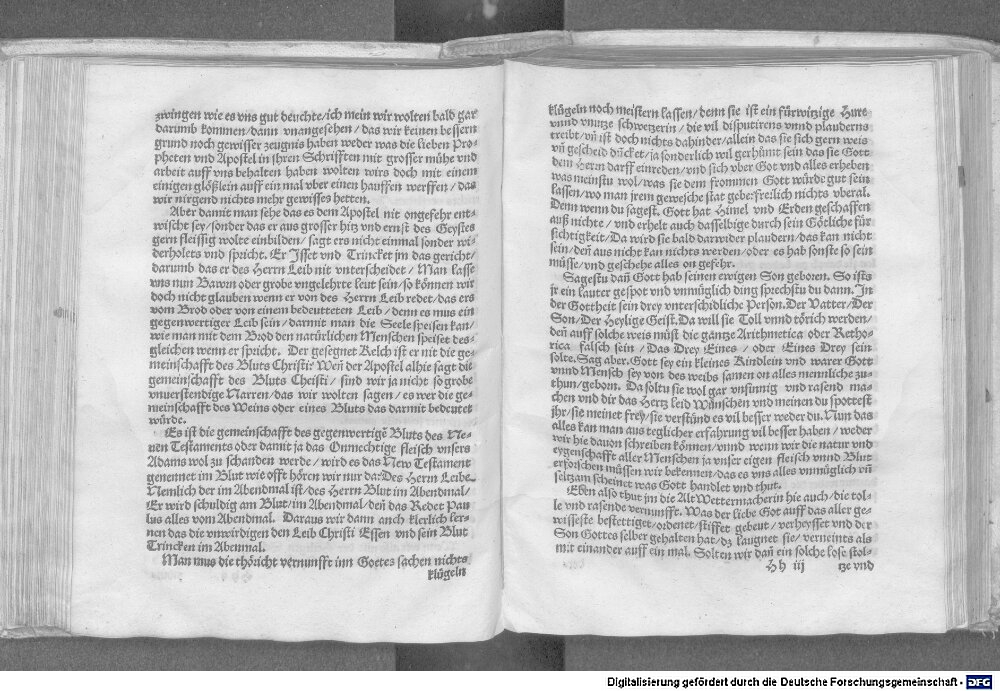 zwingen wie es vns gut deuchte/ich mein wir wolten bald gar
darumb kommen/dann vnangesehen/das wir keinen bessern
grund noch gewisser zeugnis haben weder was die lieben Pro-
pheten vnd Apostel in jhren Schrifften mit grosser mühe vnd
arbeit auff vns behalten haben wolten wirs doch mit einem
einigen glößlein auff ein mal vber einen hauffen werffen/das
wir nirgend nichts mehr gewisses hetten.
Aber damit man sehe das es dem Apostel nit ongefehr ent-
wischt sey/sonder das er aus grosser hitz vnd ernst des Geystes
gern fleissig wolte einbilden/sagt ers nicht einmal sonder wi-
derholets vnd spricht. Er Isset vnd Trincket jm das gericht/
darumb das er des Herrn Leib nit vnterscheidet/Man lasse
vns nun Bawrn oder grobe vngelehrte leut sein/so können wir
doch nicht glauben wenn er von des Herrn Leib redet/das ers
vom Brod oder von einem bedeutteten Leib/denn es mus ein
gegenwertiger Leib sein/darmit man die Seele speisen kan/
wie man mit dem Brod den natürlichen Menschen speiset des-
gleichen wenn er spricht. Der gesegnet Kelch ist er nit die ge-
meinschafft des Bluts Christi? Weñ der Apostel alhie sagt die
gemeinschafft des Bluts Christi/sind wir ja nicht so grobe
vnuerstendige Narren/das wir wolten sagen/es wer die ge-
meinschafft des Weins oder eines Bluts das darmit bedeutet
würde.
Es ist die gemeinschafft des gegenwertigẽ Bluts des Ne-
uen Testaments oder damit ja das Onmechtige fleisch vnsers
Adams wol zu schanden werde/wird es das New Testament
genennet im Blut wie offt hören wir nur da: Des Herrn Leibe.
Nemlich der im Abendmal ist/des Herrn Blut im Abendmal/
Er wird schuldig am Blut/im Abendmal/deñ das Redet Pau
lus alles vom Abendmal. Daraus wir dann auch klerlich ler-
nen das die vnwirdigen den Leib Christi Essen vnd sein Blut
Trincken im Abenmal.
Man mus die thöricht vernunfft inn Goetes sachen nichts
klügeln
klügeln noch meistern lassen/denn sie ist ein fürwizige Hure
vnnd vnutze schwetzerin/die vil disputirens vnnd plauderns
treibt/vñ ist doch nichts dahinder/allein das sie sich gern weis
vñ gescheid dücket/ja sonderlich wil gerhümt sein das sie Gott
dem Herrn darff einreden/vnd sich vber Got vnd alles erheben
was meinstu wol/was sie dem frommen Gott würde gut sein
lassen/wo man jrem gewesche stat gebe: freilich nichts vberal.
Denn wenn du sagest. Gott hat Himel vnd Erden geschaffen
auß nichte/vnd erhelt auch dasselbige durch sein Götliche für
sichtigkeit/Da wird sie bald darwider plaudern/das kan nicht
sein/deñ aus nicht kan nichts werden/oder es hab sonste so sein
müsse/vnd geschehe alles on gefehr.
Sagestu dañ Gott hab seinen ewigen Son geboren. So ists
jr ein lauter gespot vnd vnmüglich ding sprechstu du dann. In
der Gottheit sein drey vnterschidliche Person. Der Vatter/Der
Son/Der Heylige Geist. Da will sie Toll vnnd törich werden/
deñ auff solche weis müst die gantze Arithmetica oder Retho-
rica falsch sein/Das Drey Eines/oder Eines Drey sein
solte. Sag aber. Gott sey ein kleines Kindlein vnd warer Gott
vnnd Mensch sey von des weibs samen on alles mennliche zu-
thun/geborn. Da soltu sie wol gar vnsinnig vnd rasend ma-
chen vnd dir das Hertz leid Wünschen vnd meinen du spottest
jhr/sie meinet frey/sie verstünd es vil besser weder du. Nun das
alles kan man aus teglicher erfahrung vil besser haben/weder
wir hie dauon schreiben können/vnnd wenn wir die natur vnd
eygenschafft aller Menschen ja vnser eigen fleisch vnnd Blut
erforschen müssen wir bekennen/das es vns alles vnmüglich vñ
seltzam scheinet was Gott handlet vnd thut.
Eben also thut jm die Alt Wettermacherin hie auch/die tol-
le vnd rasende vernunfft. Was der liebe Got auff das aller ge-
wisseste bestettiget/ordenet/stifftet gebeut/verheysset vnd der
Son Gottes selber gehalten hat/dz laugnet sie/verneints als
mit einander auff ein mal. Solten wir dañ ein solche lose stol-
Hh iij tze vnd
Digitalisierung gefördert durch die Deutsche Forschungsgemeinschaft - DFG